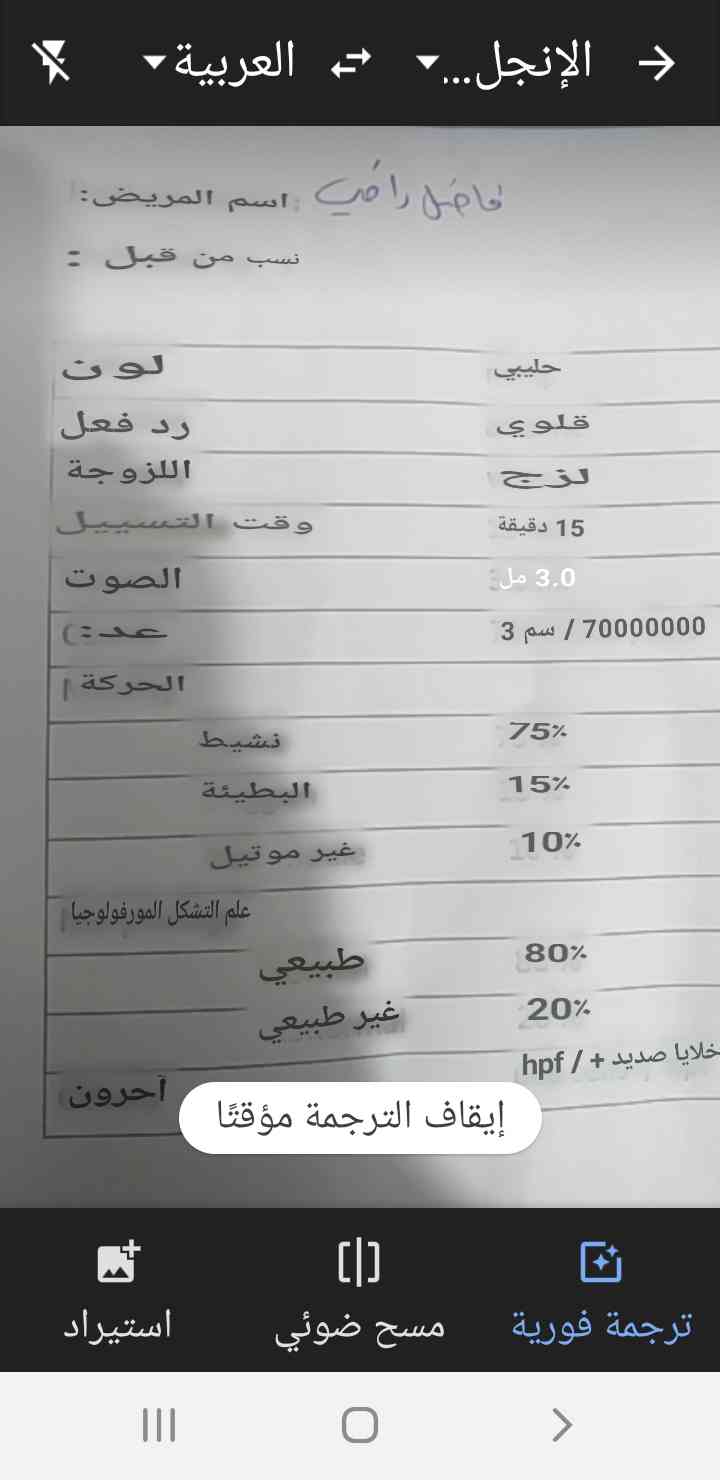 الإنجل... العربية
اسم المريض: فاضل راضي
نسب من قبل :
لون حليبي
رد فعل قلوي
اللزوجة لزج
وقت التسييل 15 دقيقة
الصوت 3.0 مل
عد:) 70000000 / سم 3
الحركة
نشيط 75%
البطيئة 15%
غير موتيل 10%
علم التشكل المورفولوجيا
طبيعي 80%
غير طبيعي 20%
آحرون خلايا صديد + / hpf
إيقاف الترجمة مؤقتًا
ترجمة فورية
مسح ضوئي
استيراد